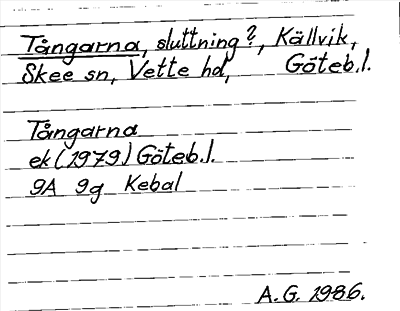 Tångarna, sluttning?, Källvik,
Skee sn, Vette hd, Göteb.l.
Tångarna
ek (1979) Göteb.l.
9A 9g Kebal
A.G. 1986.